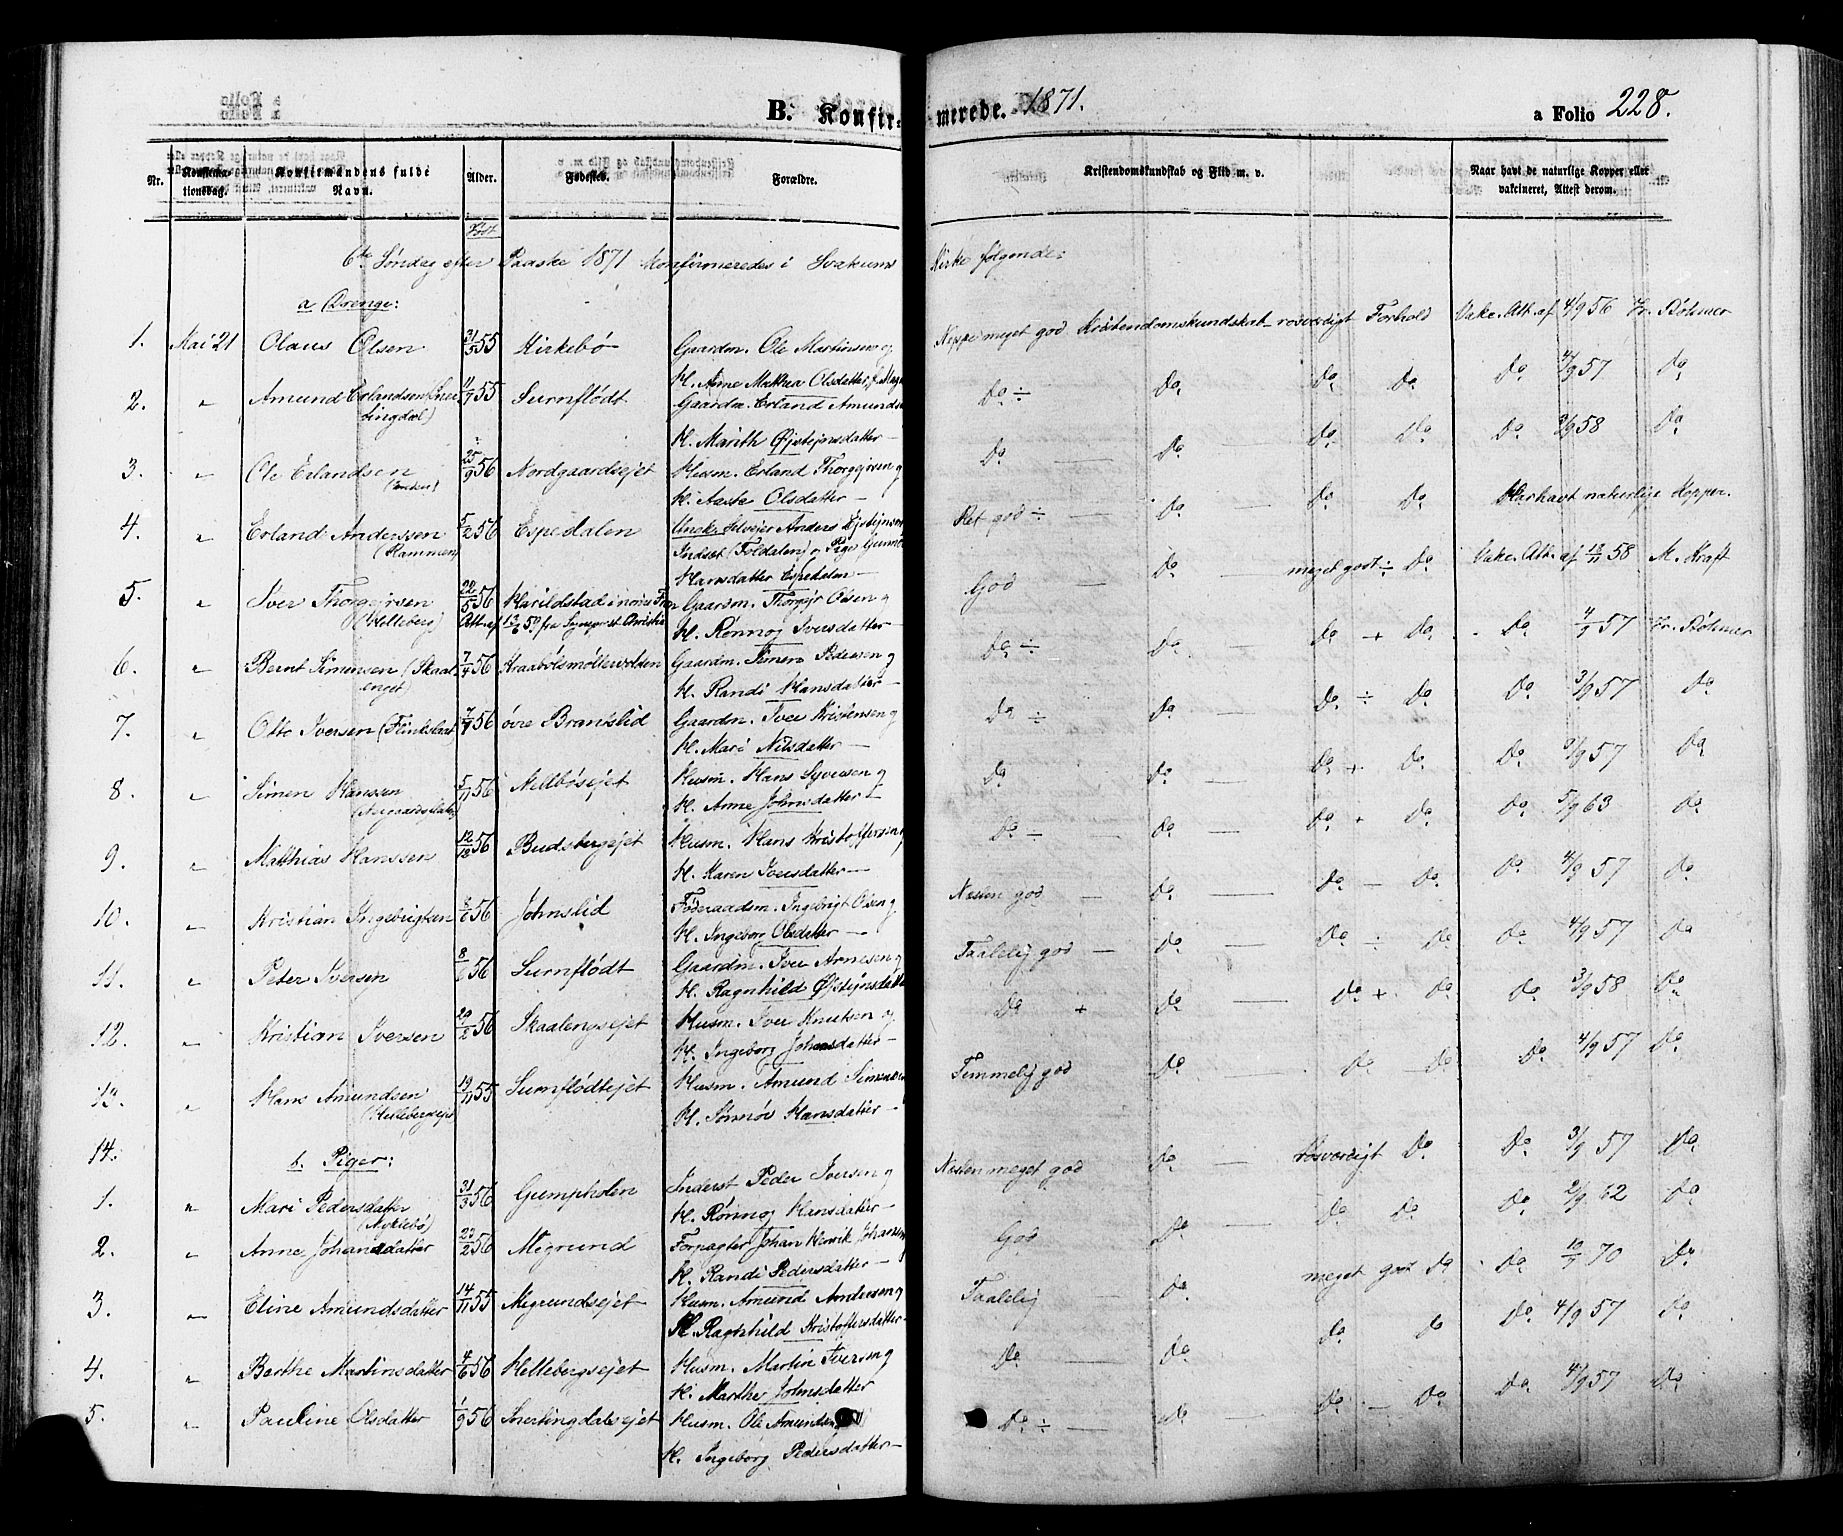 B. Konfirmerede. 1871. a Folio 228.
Nr. Konfirmationsdag. Konfirmandens fulde Navn. Alder. Fødested. Forældre. Kristendomskundskab og Flid m. v. Naar havt de naturlige Kopper eller vakcineret, Attest derom.
Født
6te Søndag efter Paaske 1871 Konfirmeredes i Svatsums Kirke følgende:
a Drenge:
1. Mai 21 Olaus Olsen 31/5 55 Kirkebø Gaardm. Ole Martinsen og Neppe meget god Kristendomskundskab - rosværdigt Forhold Vakc. Att. af 4/9 56 Fr. Bøhmer
K. Anne Mathea Olsdatter
2. " Amund Erlandsen 55 Surnflødt Gaardm. Erland Amundsen Do ÷ Do Do Do Do 4/9 57 Do
K. Marith Øjstejnsdatter —
3. " Ole Erlandsen 25/9 56 Nordgaardsejet Husm. Erland Thorgejrsen og Do Do — Do Do Do 3/9 58 Do
K. Aaste Olsdatter —
4. " Erland Anderssen 5/2 56 Espedalen Ungk. Selvejer Anders Øjstejnsen Ret god ÷ Do — Do Do Har havt naturlige Kopper.
(Rammen) Indsæt (Foldalen) og Pige Gunnor
Hansdatter Espedalen —
5. " Iver Thorgejrsen 22/5 56 Harildstad i nordre Fron Gaardm. Thorgejr Olsen og God — Do — meget godt ÷ Do Vakc. Att. af 18/11 58 M. Kraft
(Helleberg) K. Rønnog Iversdatter —
6. " Bernt Simensen (Skaalenget) 7/4 56 Kraabølsmøllevolden Gaardm. Simen Pedersen og Do ÷ Do Do + Do Do 57 Fr. Bøhmer
K. Randi Hansdatter —
7. " Otto Iversen 56 øvre Branslid Gaardm. Iver Kristensen og Do ÷ Do — Do ÷ Do Do 3/9 57 Do
K. Mari Nilsdatter —
8. " Simen Hanssen 5/11 56 Melbøsejet Husm. Hans Syversen og Do Do — Do + Do Do 3/9 57 Do
K. Anne Johnsdatter —
9. " Matthias Hanssen 12/12 56 Budsbergejet Husm. Hans Kristoffersen og Do ÷ Do — Do + Do Do 5/9 63 Do
K. Karen Iversdatter —
10. " Kristian Ingebrigtsen 8/6 56 Johnslid Føderaadsm. Ingebrigt Olsen og Næsten god — Do — Do — Do Do 4/9 57 Do
K. Ingeborg Olsdatter —
11. " Peter Iversen 8/6 56 Surnflødt Gaardm. Iver Arnesen og Taalelig god — Do — Do ÷ Do Do 4/9 57 Do
K. Ragnhild Øjstejnsdatter
12. " Kristian Iversen 29/2 56 Skaalengsejet Husm. Iver Knutsen og Do + Do — Do + Do Do 3/9 58 Do
K. Ingeborg Johansdatter —
13. " Hans Amundsen 19/11 55 Surnflødtejet Husm. Amund Simensen Temmelig god Do — Do Do Do 4/9 57 Do
(Hellebergsejet) K. Sønnøv Hansdatter —
14.
b. Piger:
1. " Mari Pedersdatter 31/3 56 Gumpholen Inderst Peder Iversen og Næsten meget god Do — rosværdigt Do Do 3/9 57 Do
K. Rønnog Hansdatter —
2. " Anne Johansdatter 22/2 56 Megrund Forpagter Johan Henrik Johansen God Do Do Do Do 2/9 62 Do
K. Randi Pedersdatter —
3. " Eline Amundsdatter 14/11 55 Megrundsejet Husm. Amund Andersen og Taalelig — Do meget godt Do Do 70 Do
K. Ragnhild Kristoffersdatter —
4. " Berthe Martinsdatter 4/6 56 Hellebergsejet Husm. Martin Iversen og Do — Do Do Do Do 4/9 57 Do
K. Marthe Johnsdatter
5. " Pauline Olsdatter 1/9 56 Snertingdalsejet Husm. Ole Amundsen Do ÷ — Do Do — Do Do 4/9 57 Do
K. Ingeborg Pedersdatter —